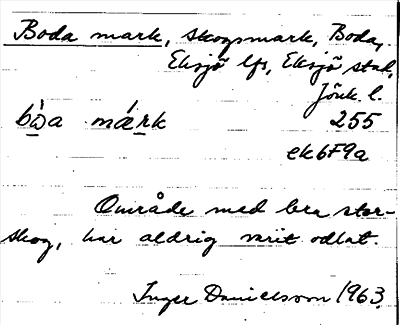 Boda mark, skogsmark, Boda,
Eksjö lfs, Eksjö stad,
Jönk. l.
bὼa mǽrk 255
ek6F9a
Område med bra stor-
skog, har aldrig varit odlat.
Inger Danielsson 1963.